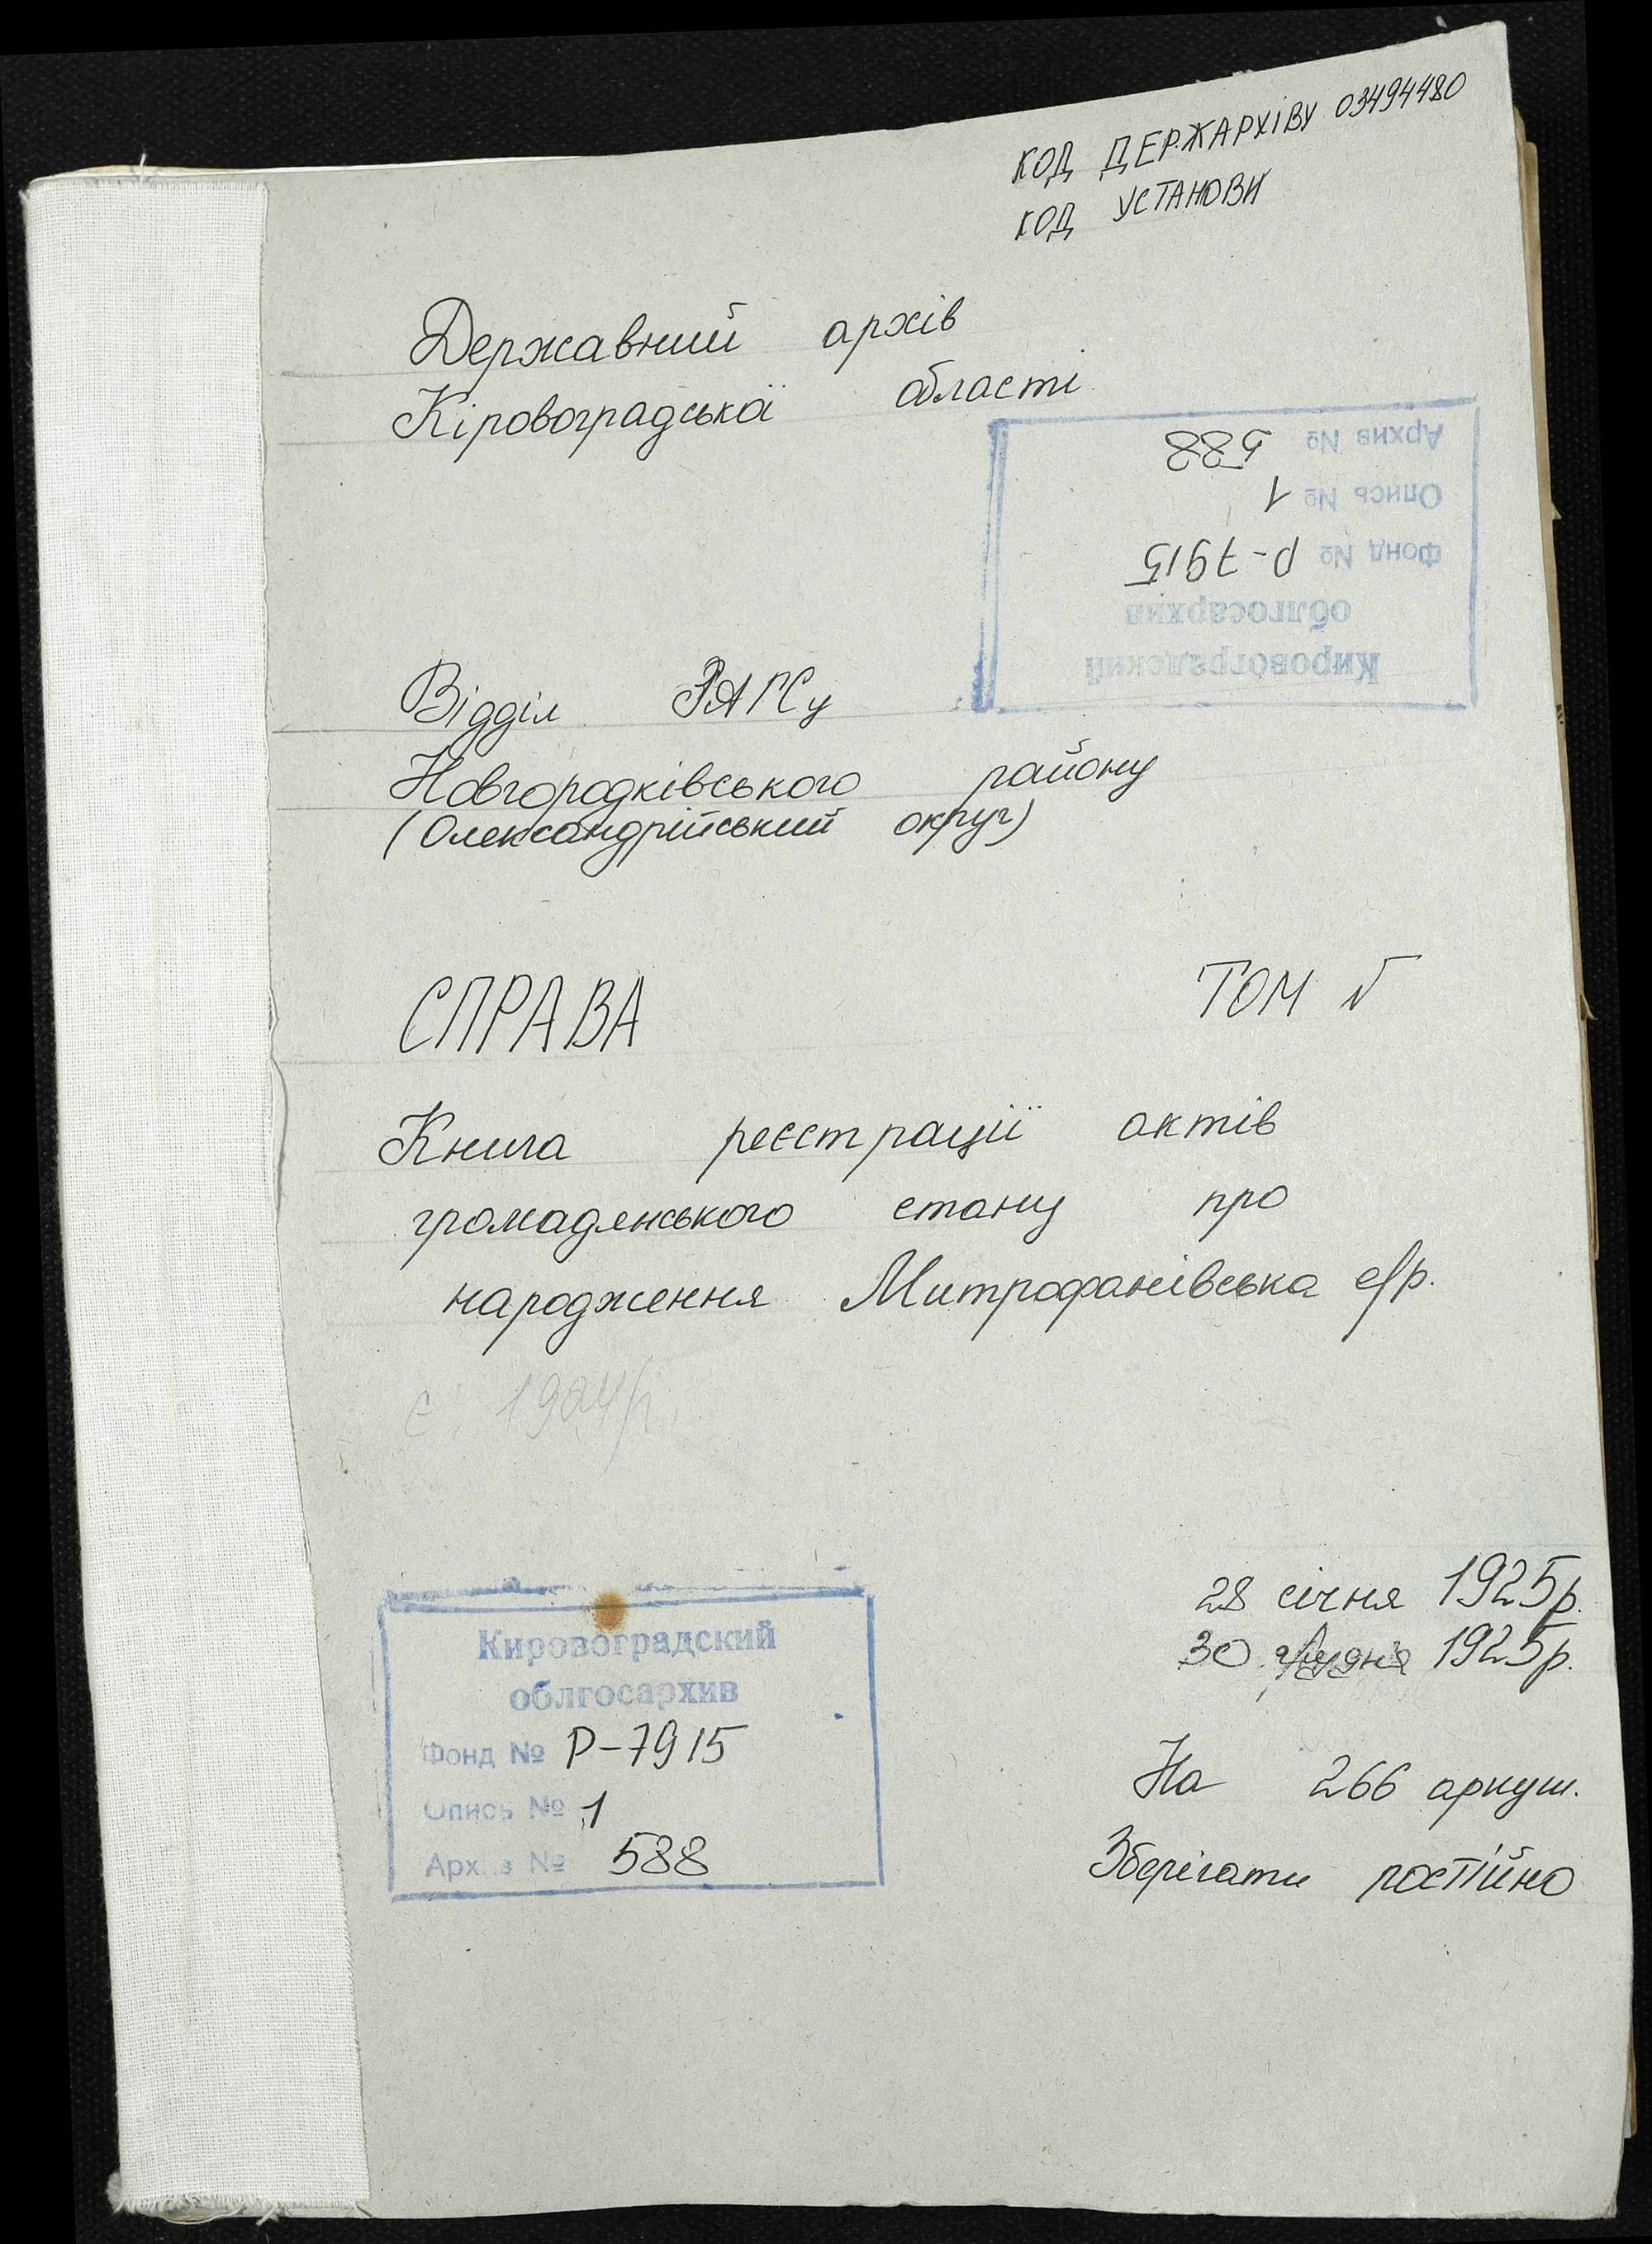 КОД ДЕРЖАРХІВУ 03494480
КОД УСТАНОВИ
Державний архів
Кіровоградської області
Архив № 588
Опись № 1
Фонд № Р-7915
облгосархив
Кировоградский
Відділ ЗАГСу
Новгородківського району
(Олександрійський округ)
СПРАВА ТОМ №
Книга реєстрації актів
громадянського стану про
народження Митрофанівська с/р.
є. 1924р.
28 січня 1925р.
30 грудня 1925р.
Кировоградский
облгосархив
Фонд № Р-7915
Опись № 1
Архив № 588
На 266 аркуш.
Зберігати постійно